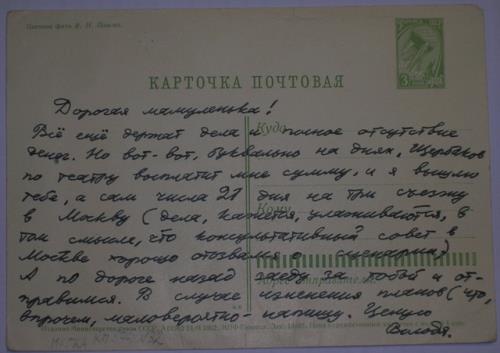 Цветное фото
КАРТОЧКА ПОЧТОВАЯ
3
Дорогая мамуленька!
Куда
Всё ещё держат дела и полное отсутствие
денег. Но вот-вот, буквально на днях, Щербаков
по театру выплатит мне сумму, и я вышлю
тебе, а сам числа 21 дня на три съезжу
Кому
в Москву (дела, кажется, улаживаются, в
том смысле, что консультативный совет в
Москве хорошо отозвался о сценарии)
А по дороге назад заеду за тобой и от-
Адрес отправителя:
правимся. В случае изменения планов (что,
впрочем, маловероятно - напишу. Целую
Володя.
Издание Министерства связи СССР.